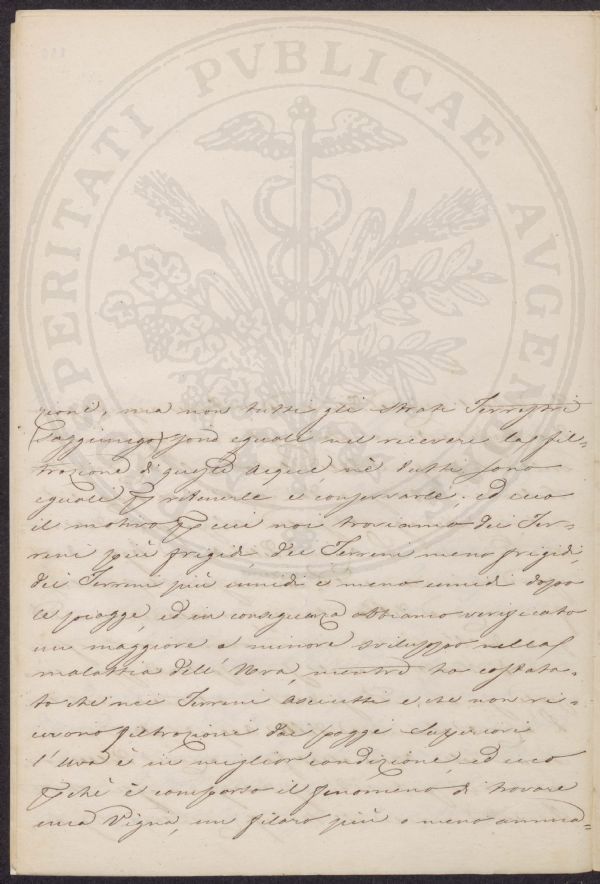 PROSPERITATI PVBLICAE AVGENDAE
zione, ma non tutti gli strati Terrestri
(soggiungo) sono eguali nel ricevere la fil=
trazione di queste acque nè tutti sono
eguali p ritenerle e conservarle, ed ecco
il motivo p cui noi troviamo dei Ter=
reni più frigidi, dei Terreni meno frigidi,
dei Terreni più umidi e meno umidi dopo
le piogge, ed in conseguenza abbiamo verificato
un maggiore o minore sviluppo nella
malattia dell'Uva, mentre ho costata=
to che nei Terreni asciutti e che non ri=
cevono filtrazione dai poggi Superiori
l'uva è in miglior condizione, ed ecco
pchè è comparso il fenomeno di trovare
una Vigna, un filaro più o meno amma=